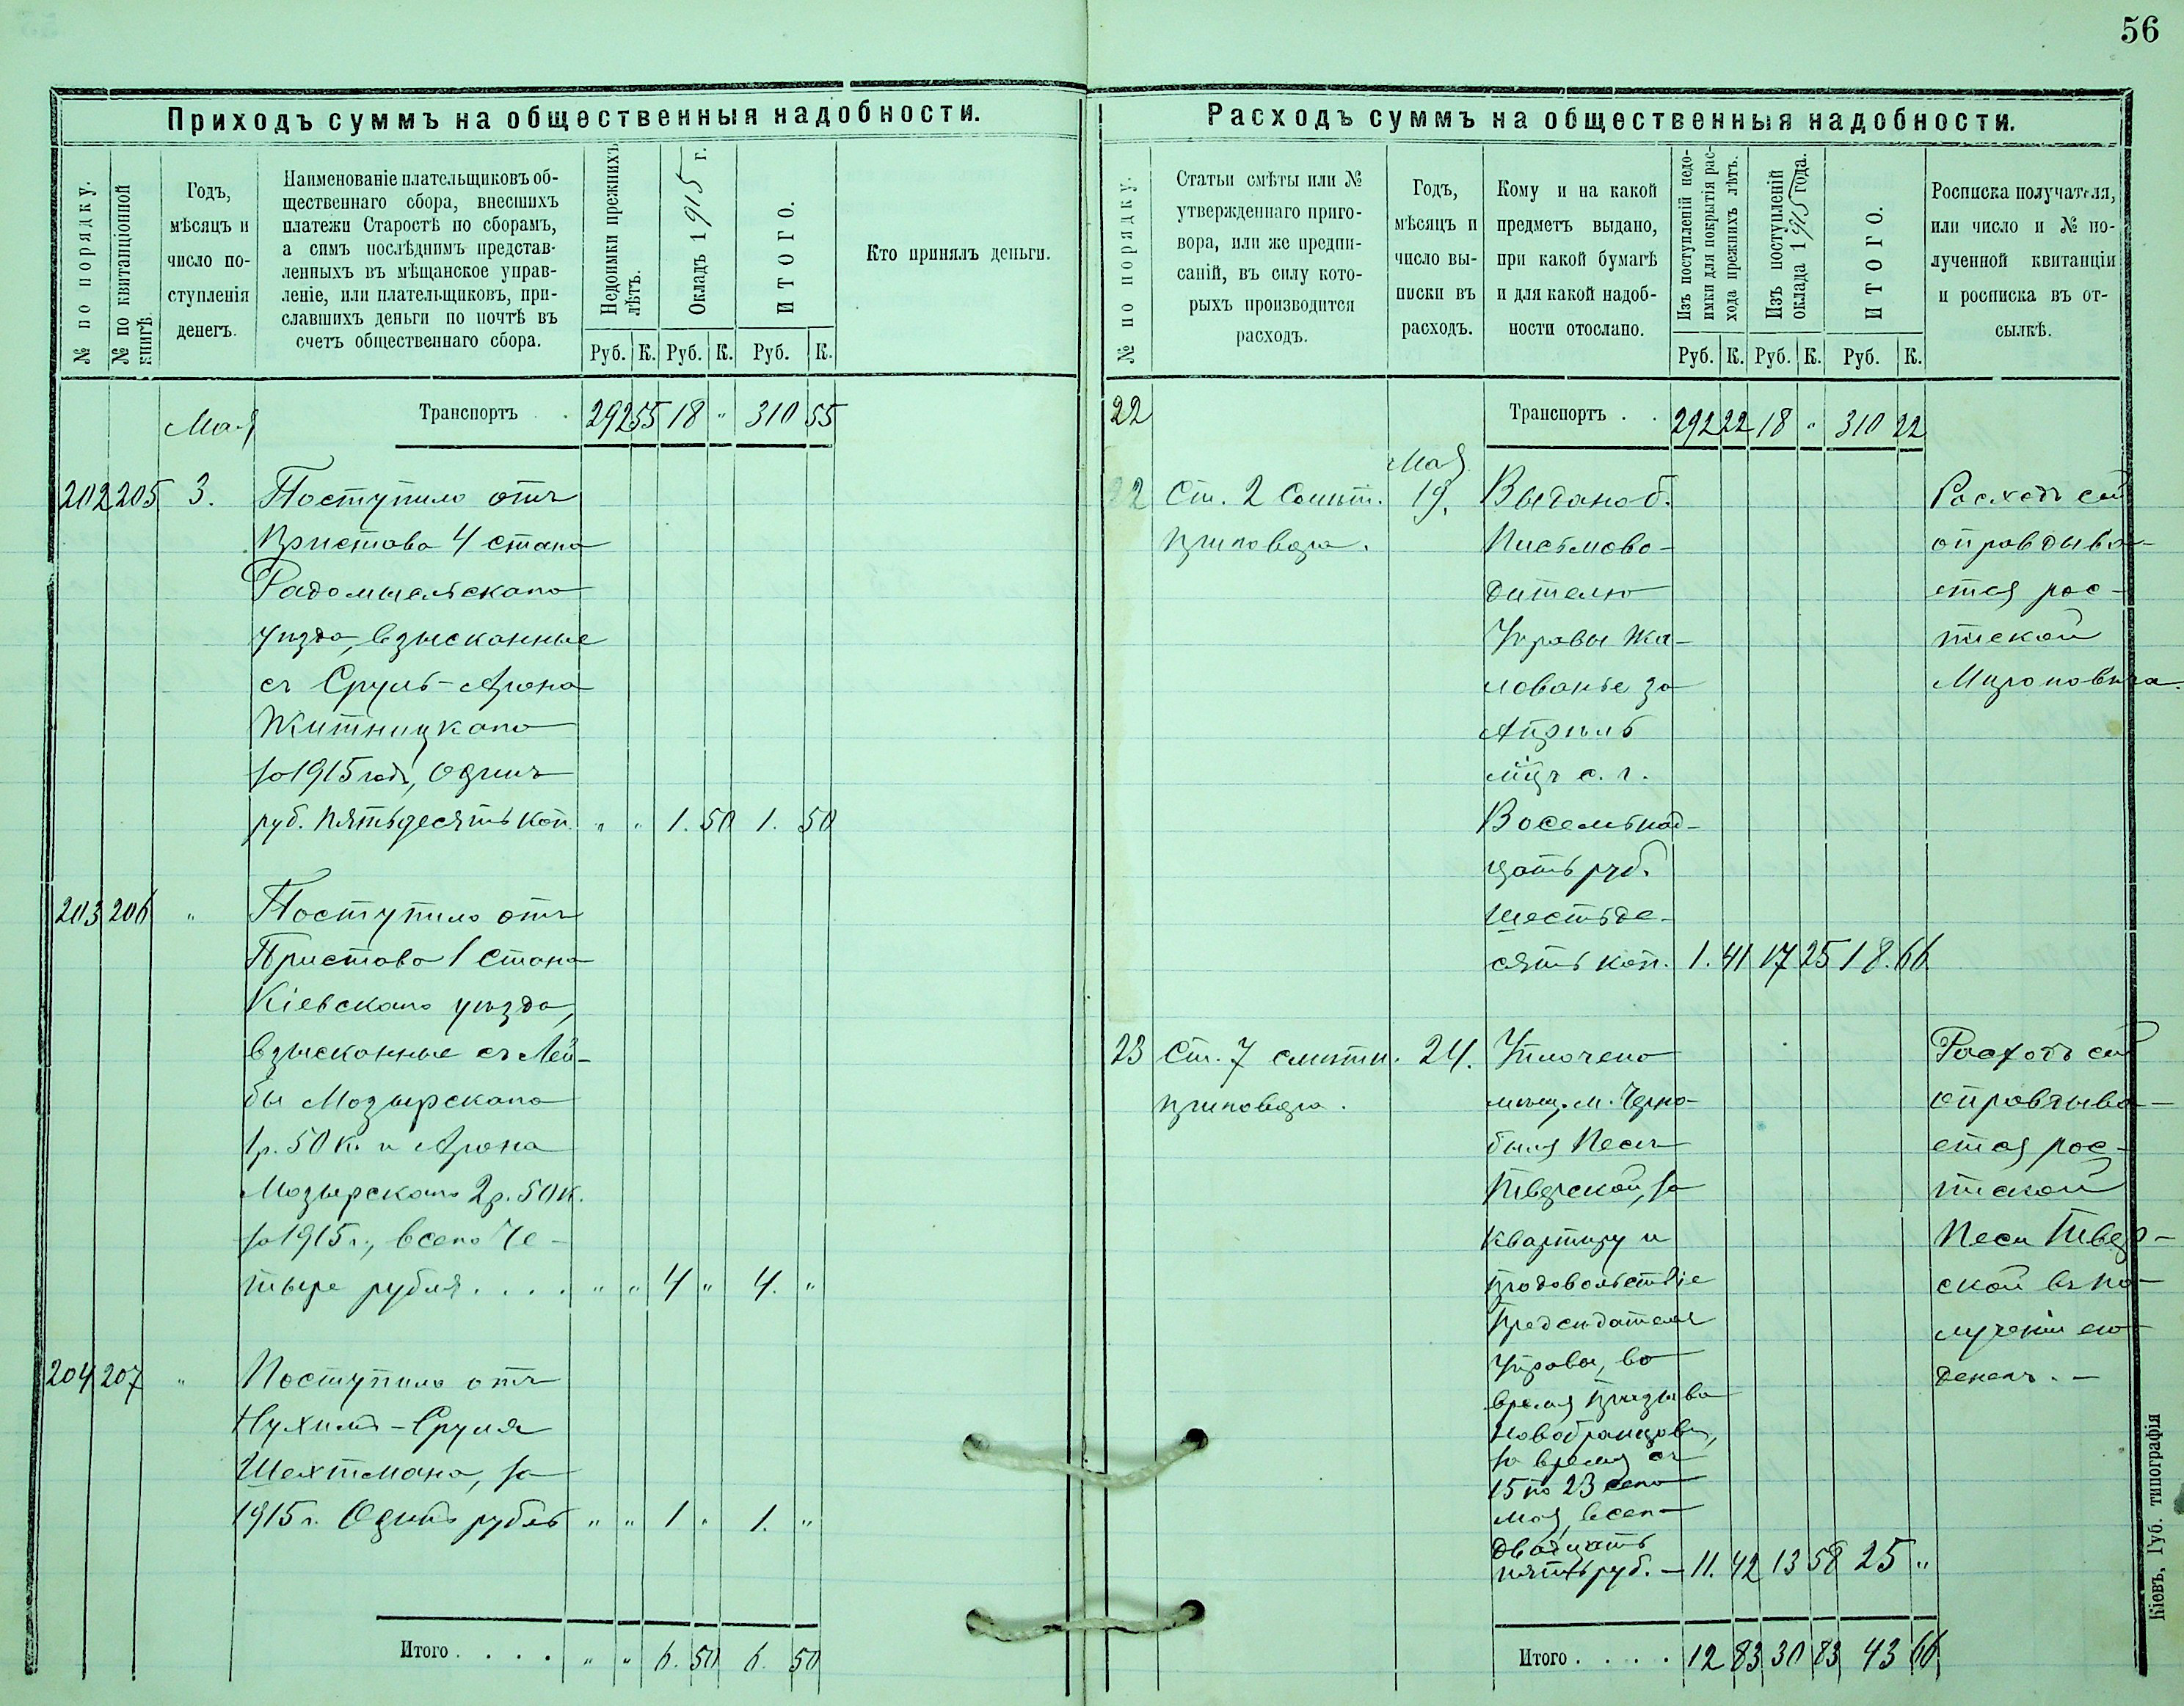 56
Приходъ суммъ на общественныя надобности.
№ по порядку.
№ по квитанціонной книгѣ.
Годъ,
мѣсяцъ и
число по-
ступленія
денегъ.
Наименованіе плательщиковъ об-
щественнаго сбора, внесшихъ
платежи Старостѣ по сборамъ,
а симъ послѣднимъ представ-
ленныхъ въ мѣщанское управ-
леніе, или плательщиковъ, при-
славшихъ деньги по почтѣ въ
счетъ общественнаго сбора.
Недоимки прежнихъ
лѣтъ.
Окладъ 1915 г.
ИТОГО.
Кто принялъ деньги.
Руб. К. Руб. К. Руб. К.
Мая Транспортъ . . 292 55 18 " 310 55
202 205 3. Поступило отъ
Пристава 4 стана
Радомысльскаго
уѣзда, взысканные
съ Сруль-Арона
Житницкаго
за 1915 годъ, Одинъ
руб. пятьдесятъ коп. " " 1. 50 1. 50
203 206 " Поступило отъ
Пристава 1 Стана
Кіевскаго уѣзда,
взысканные съ Лей-
бы Мозырскаго
1 р. 50 к. и Арона
Мозырскаго 2 р. 50 к.
за 1915 г., всего Че-
тыре рубля . . . . " " 4 " 4. "
204 207 " Поступило отъ
Нухимъ-Сруля
Шехтмана, за
1915 г. Одинъ рубль " " 1 " 1. "
Итого . . . . " " 6. 50 6. 50
Расходъ суммъ на общественныя надобности.
№ по порядку.
Статьи смѣты или №
утвержденнаго приго-
вора, или же предпи-
саній, въ силу кото-
рыхъ производится
расходъ.
Годъ,
мѣсяцъ и
число вы-
писки въ
расходъ.
Кому и на какой
предметъ выдано,
при какой бумагѣ
и для какой надоб-
ности отослано.
Изъ поступленій недо-
имки для покрытія рас-
хода прежнихъ лѣтъ.
Изъ поступленій
оклада 1915 года.
ИТОГО.
Росписка получателя,
или число и № по-
лученной квитанціи
и росписка въ от-
сылкѣ.
Руб. К. Руб. К. Руб. К.
22 Транспортъ . . 292 22 18 " 310 22
Мая
22 Ст. 2 Смѣтн. 19. Выдано б. Расходъ сей
приговора. Письмово- оправдыва-
дителю ется рос-
Управы жа- пиской
лованье за
Апрѣль
мцъ с. г.
Восемьнад-
цать руб.
шестьде-
сятъ коп. 1. 41 17 25 18. 66
23 Ст. 7 смѣтн. 24. Уплочено Расходъ сей
приговора. мѣщ. м. Черно- оправдыва-
быля Песи ется рос-
Тверской, за пиской
квартиру и Песи Твер-
продовольствіе ской въ по-
Предсѣдателя лученіи ею
Управы, во денегъ. –
время призыва
новобранцовъ,
за время съ
15 по 23 сего
мая, всего
двадцать
пять руб. – 11. 42 13 58 25 "
Итого . . . . 12 83 30 83 43 66
Кіевъ, Губ. типографія